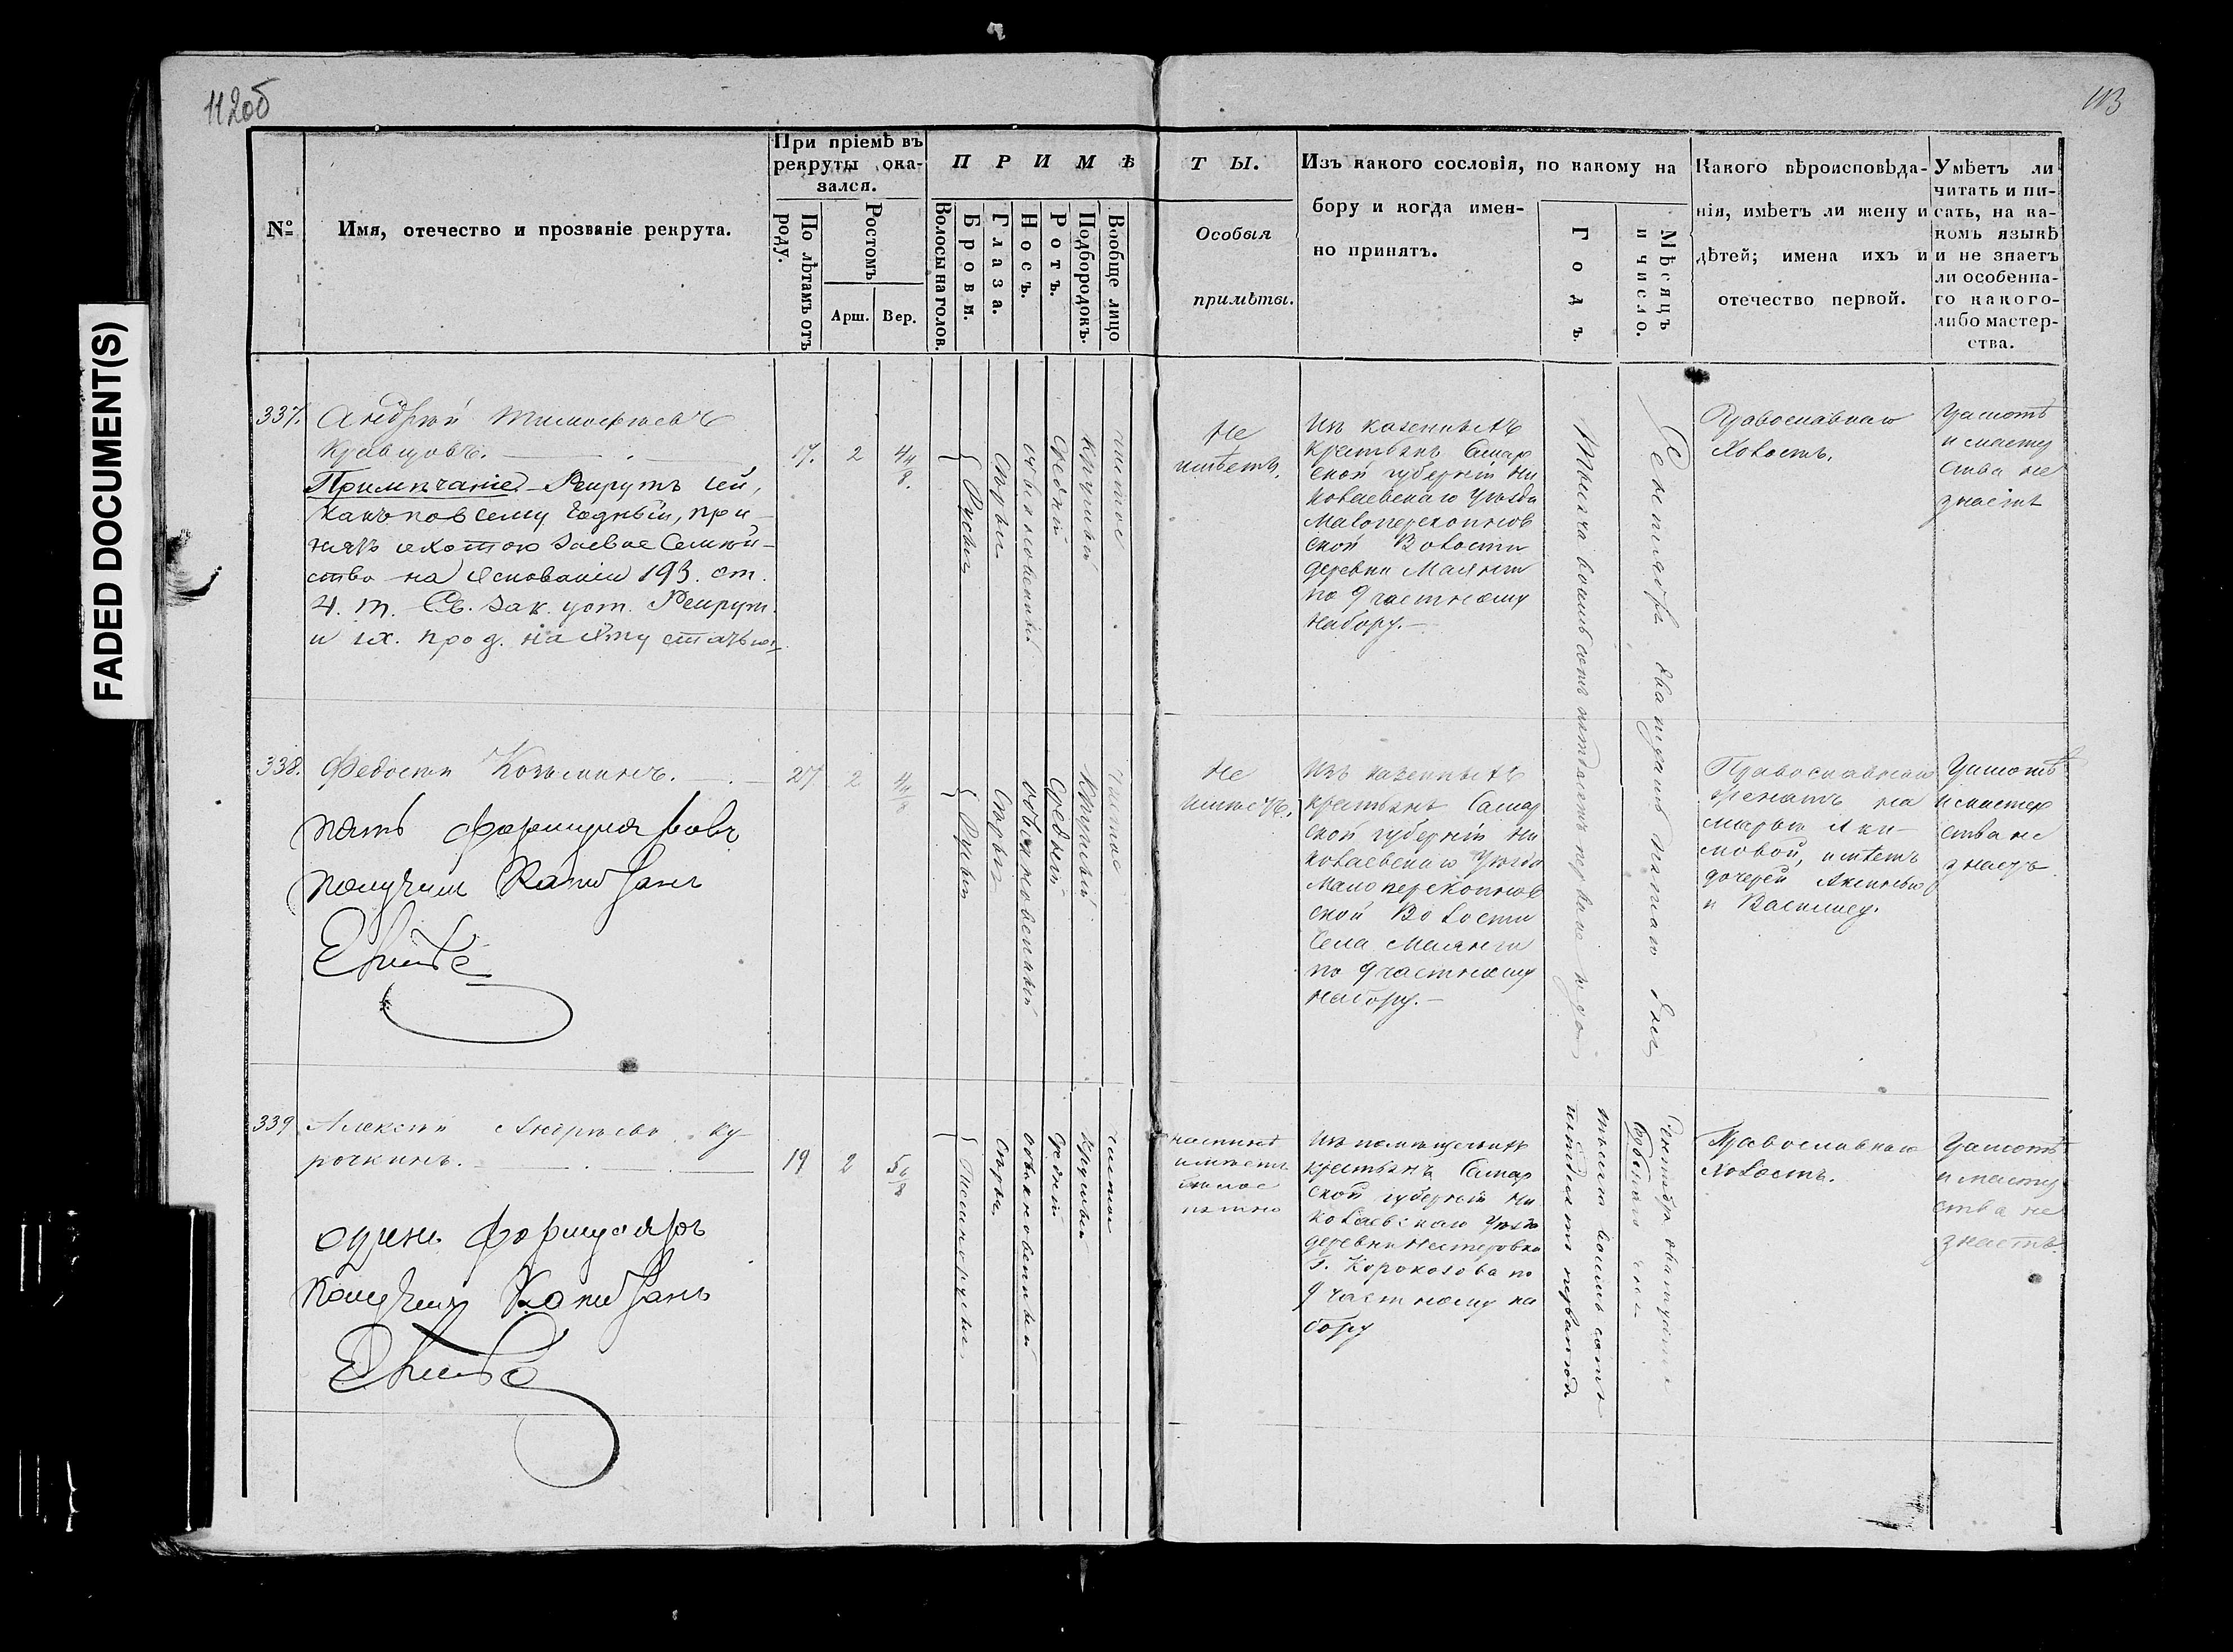 112об
113
FADED DOCUMENT(S)
№
Имя, отечество и прозваніе рекрута.
При пріемѣ въ
рекруты ока-
зался.
По лѣтамъ отъ
роду.
Ростомъ
Арш.
Вер.
ПРИМѢ
Волосы на голов.
Брови.
Глаза.
Носъ.
Ротъ.
Подбородокъ.
Вообще лицо
ТЫ.
Особыя
примѣты.
Изъ какого сословія, по какому на
бору и когда имен-
но принятъ.
Годъ.
Мѣсяцъ
и число.
Какого вѣроисповѣда-
нія, имѣетъ ли жену и
дѣтей; имена ихъ и
отечество первой.
Умѣетъ ли
читать и пи-
сать, на ка-
комъ языкѣ
и не знаетъ
ли особенна-
го какого-
либо мастер-
ства.
337.
Андрей Тимофеевъ
Кравцовъ.
Примѣчаніе. Рекрутъ сей,
какъ по всему годный, при-
нятъ охотою за свое Семей-
ство на основаніи 193. ст.
4. т. Св. зак. уст. Рекрут.
и ІХ. прод. на эту статью.
17.
2
4 4/8.
Русыя
Сѣрыя
обыкновенный
Средній
Круглый
чистое
Не
имѣетъ.
Изъ казенныхъ
крестьянъ Самар
ской губерніи Ни
колаевскаго Уѣзда
Малоперекопнов
ской Волости
деревни Маянги
по 9 частному
набору.
Тысяча восемь сотъ пятдесятъ перваго года
Сентября двадцать пятаго дня
Православнаго
Холостъ.
Грамотѣ
и мастер
ства не
знаетъ
338.
Федосей Козьминъ.
пять формуляровъ
получилъ Капитанъ
27.
2
4 4/8
Русыя
Сѣрыя
обыкновенный
Средній
Круглый
Чистое
Не
имѣетъ.
Изъ казенныхъ
крестьянъ Самар
ской губерніи Ни
колаевскаго Уѣзда
Малоперекопнов
ской Волости
Села Маянги
по 9 частному
набору.
Православнаго
женатъ на
Марьѣ Аки-
мовой, имѣетъ
дочерей Аксинью
и Василису.
Грамотѣ
и мастер
ства не
знаетъ.
339
Алексей Андреевъ Ку
рочкинъ.
одинъ формуляръ
получилъ Капитанъ
19
2
5 6/8
Темнорусыя
Сѣрыя
обыкновенный
Средній
Круглый
чистое
имѣетъ
пятно
Изъ помѣщичьихъ
крестьянъ Самар
ской губерніи Ни
колаевскаго Уѣзда
деревни Нестеровки
Г. Корокозова по
9 частному на
бору
тысяча восемь сотъ
пятдесятъ перваго года
Сентября двадцать
Православнаго
Холостъ.
Грамотѣ
и мастер
ства не
знаетъ.